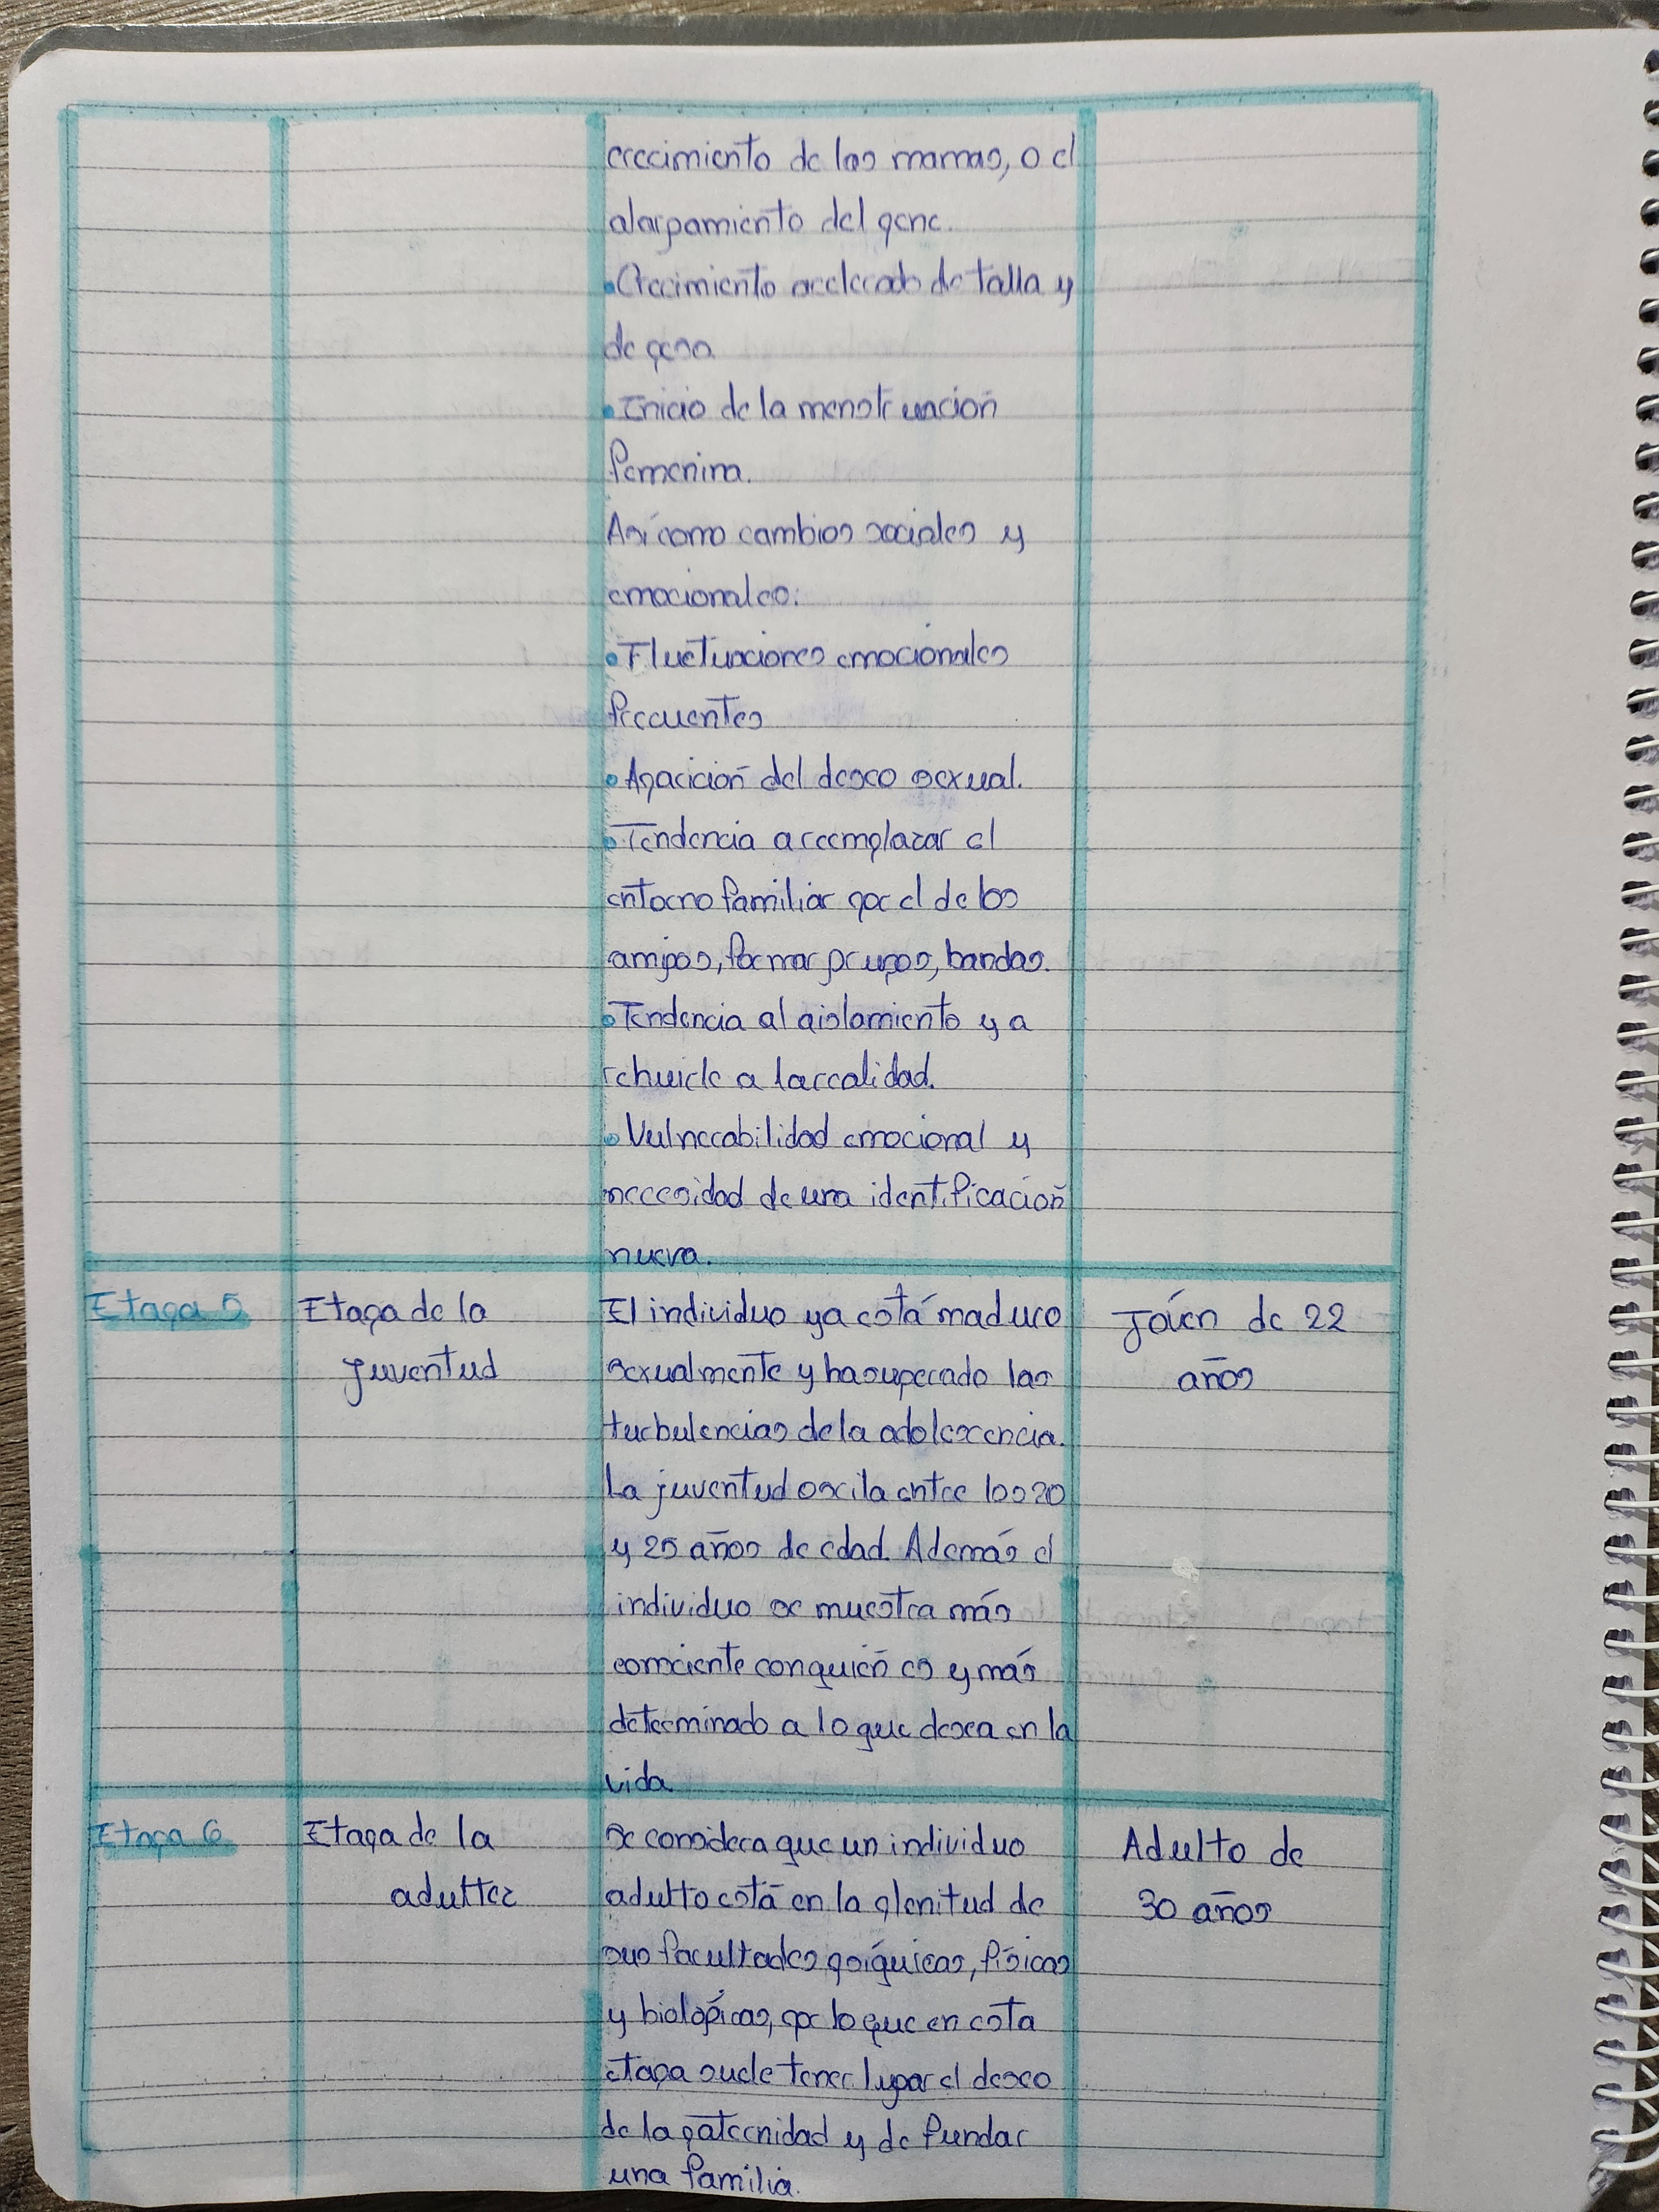 crecimiento de las mamas, o el
alargamiento del pene.
•Crecimiento acelerado de talla y
de peso.
•Inicio de la menstruación
femenina.
Así como cambios sociales y
emocionales:
•Fluctuaciones emocionales
frecuentes
•Aparición del deseo sexual.
•Tendencia a reemplazar el
entorno familiar por el de los
amigos, formar grupos, bandas.
•Tendencia al aislamiento y a
rehuirle a la realidad.
•Vulnerabilidad emocional y
necesidad de una identificación
nueva.
Etapa 5 Etapa de la El individuo ya está maduro Jóven de 22
juventud sexualmente y ha superado las años
turbulencias de la adolescencia.
La juventud oscila entre los 20
y 25 años de edad. Además el
individuo se muestra más
consciente con quién es y más
determinado a lo que desea en la
vida.
Etapa 6 Etapa de la Se considera que un individuo Adulto de
adultez adulto está en la plenitud de 30 años
sus facultades psíquicas, físicas
y biológicas, por lo que en esta
etapa suele tener lugar el deseo
de la paternidad y de fundar
una familia.